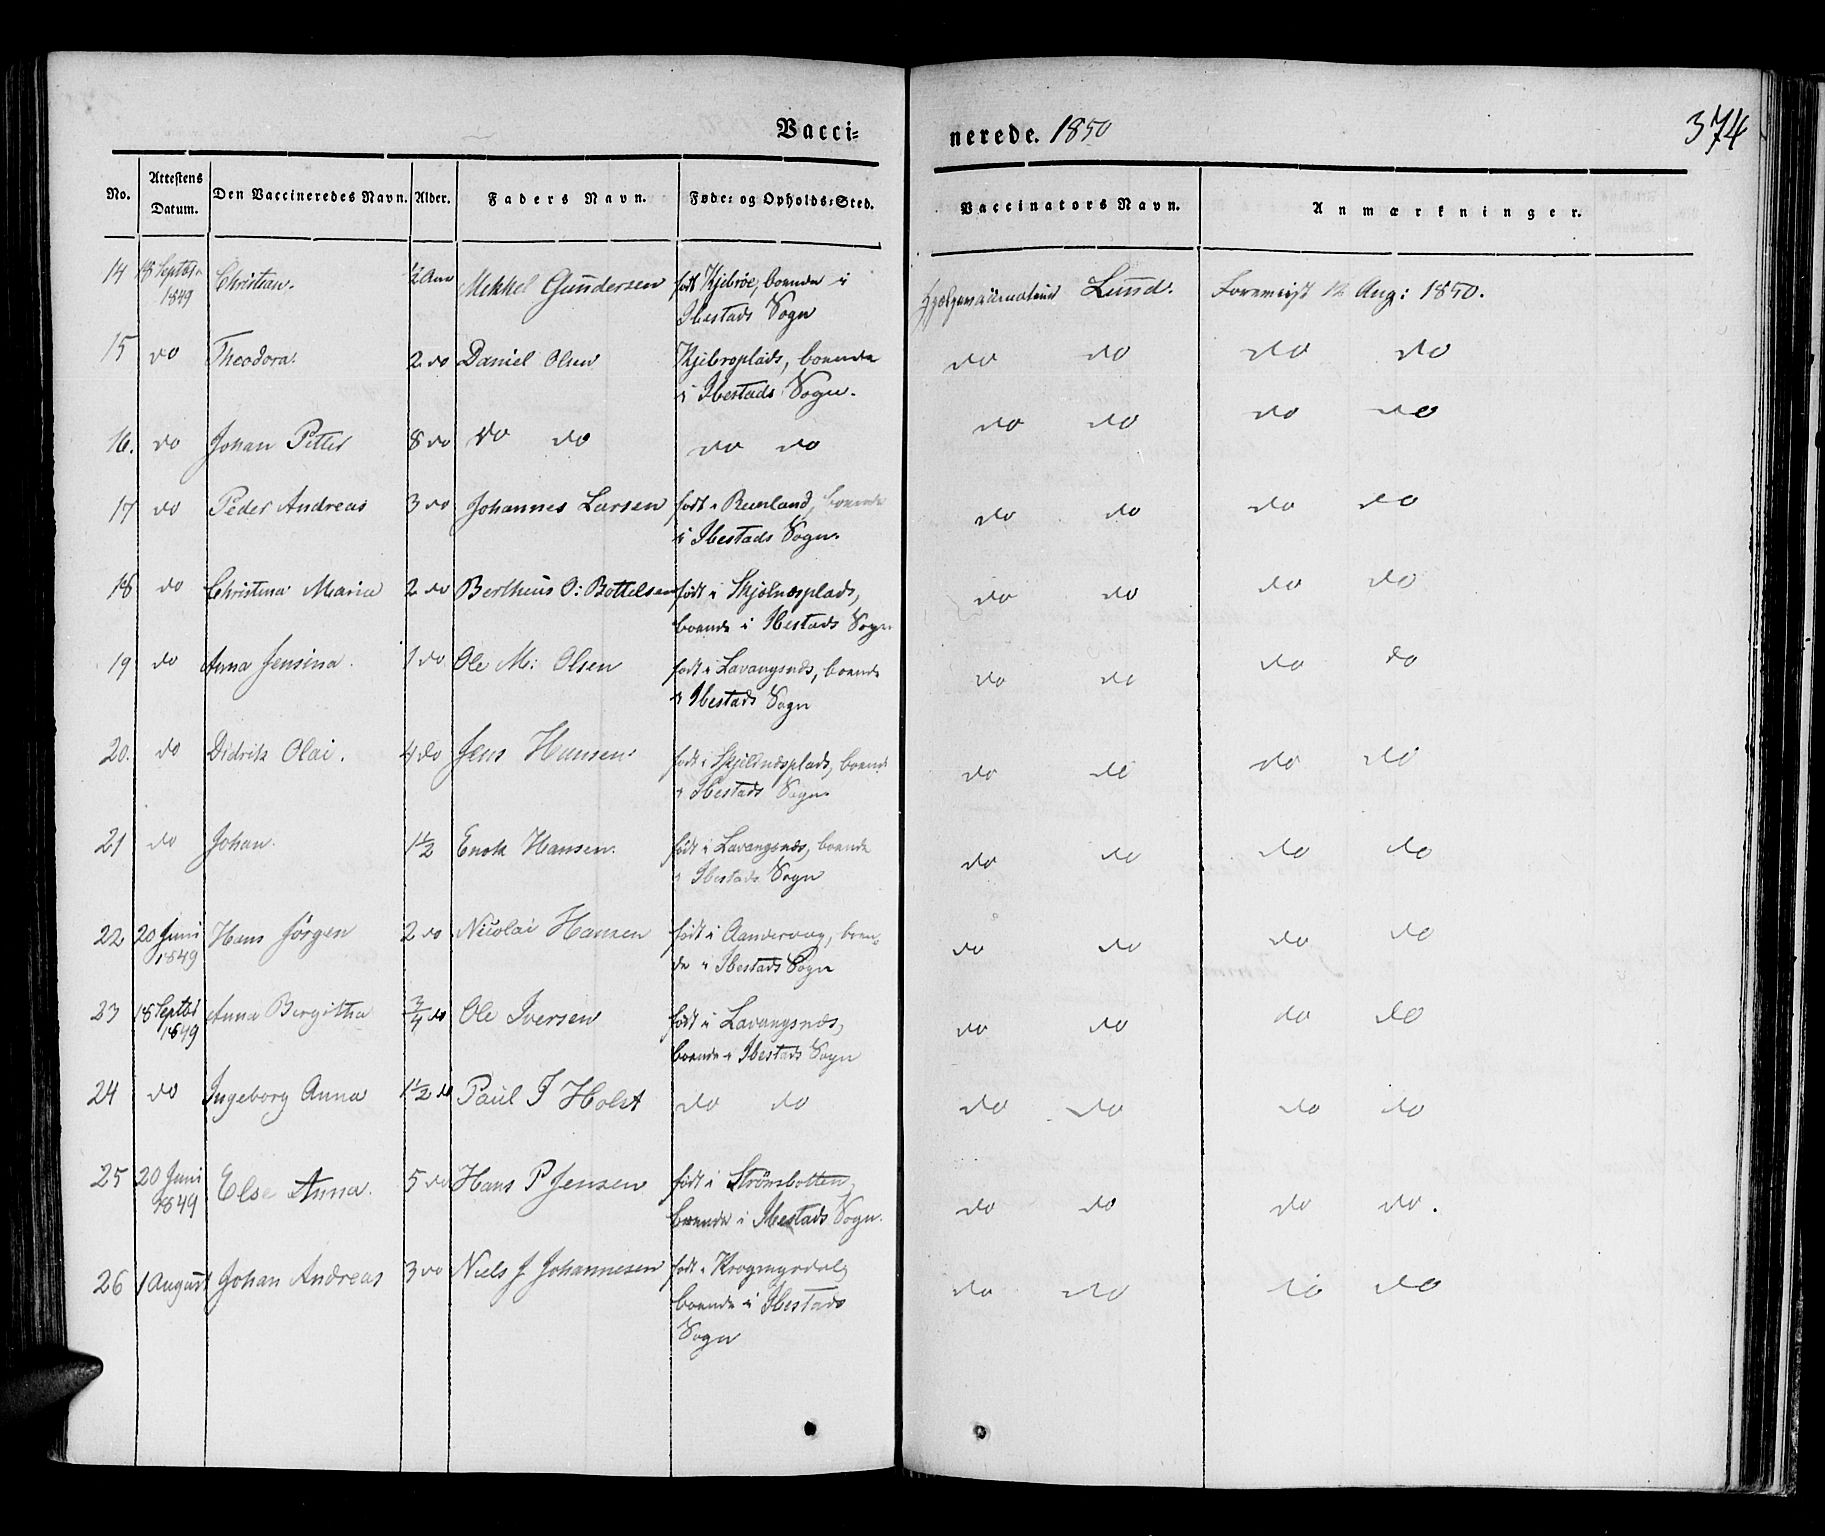 Vacci= nerede. 1850 374
No. Attestens Datum. Den Vaccineredes Navn. Alder. Faders Navn. Føde= og Opholds=Sted. Vaccinators Navn. Anmærkninger.
14 18 Septbr 1849 Christian. ½ Aar Mekkel Gundersen født Kjebroe, boende i Ibestads Sogn Hjelpevaccinateur Lund. Foreviist 12 Aug: 1850.
15 do Theodora. 2 do Daniel Olsen Kjebroplads, boende i Ibestads Sogn. do do do do
16. do Johan Petter 8 do do do do do do do do do
17 do Peder Andreas 3 do Johannes Larsen født i Reenland, boende i Ibestads Sogn. do do do do
18 do Christina Maria 2 do Bertheus O: Bottelsen født i Skjelnæsplads, boende i Ibestads Sogn do do do do
19 do Anna Jensina. 1 do Ole M: Olsen født i Lavangsnæs, boende i Ibestads Sogn do do do do
20. do Didrik Olai. 4 do Jens Hansen født i Skjelnæsplads, boende i Ibestads Sogn do do do do
21 do Johan. 1½ Enok Hansen. født i Lavangsnæs, boende i Ibestads Sogn do do do do
22 20 Juni 1849 Hans Jørgen 2 do Nicolai Hansen født i Aandervaag, boen- de i Ibestads Sogn do do do do
23 18 Septbr 1849 Anna Bergitha ¾ do Ole Iversen født i Lavangsnæs, boende i Ibestads Sogn do do do do
24 do Ingeborg Anna 1½ do Paul J Holst do do do do do do
25 20 Juni 1849 Else Anna. 5 do Hans P Jensen født i Strømsbotten, boende i Ibestads Sogn. do do do do.
26 1 August Johan Andreas 3 do Niels J Johannesen født i Krogmyrdal, boende i Ibestads Sogn do do do do